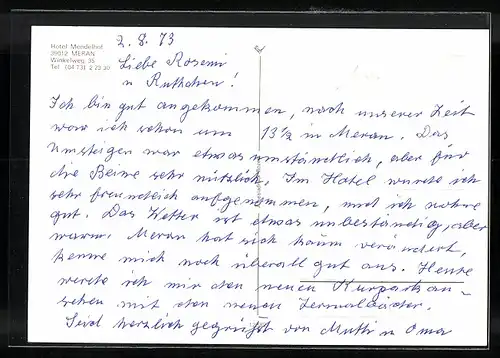 Hotel Mendelhof
39012 MERAN
Winkelweg, 35
Tel. (04 73) 2 25 30
2.8.73
Liebe Rosemi
u Ruthchen!
Ich bin gut angekommen, nach unserer Zeit
war ich schon um 13½ in Meran. Das
Umsteigen war etwas umständlich, aber für
die Beine sehr nützlich. Im Hotel wurde ich
sehr freundlich aufgenommen, und ich wohne
gut. Das Wetter ist etwas unbeständig, aber
warm. Meran hat sich kaum verändert,
kenne mich noch überall gut aus. Heute
werde ich mir den neuen Kurpark an-
sehen mit den neuen Termalbäder.
Seid herzlich gegrüßt von Mutti u Oma